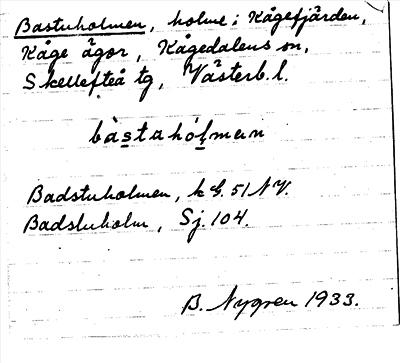 Bastuholmen, holme i Kågefjärden,
Kåge ägor, Kågedalens sn,
Skellefteå tg, Västerb. l.
bàstahól̥mɐn
Badstuholmen, kG. 51 NV.
Badstuholm, Sj. 104.
B. Nygren 1933.